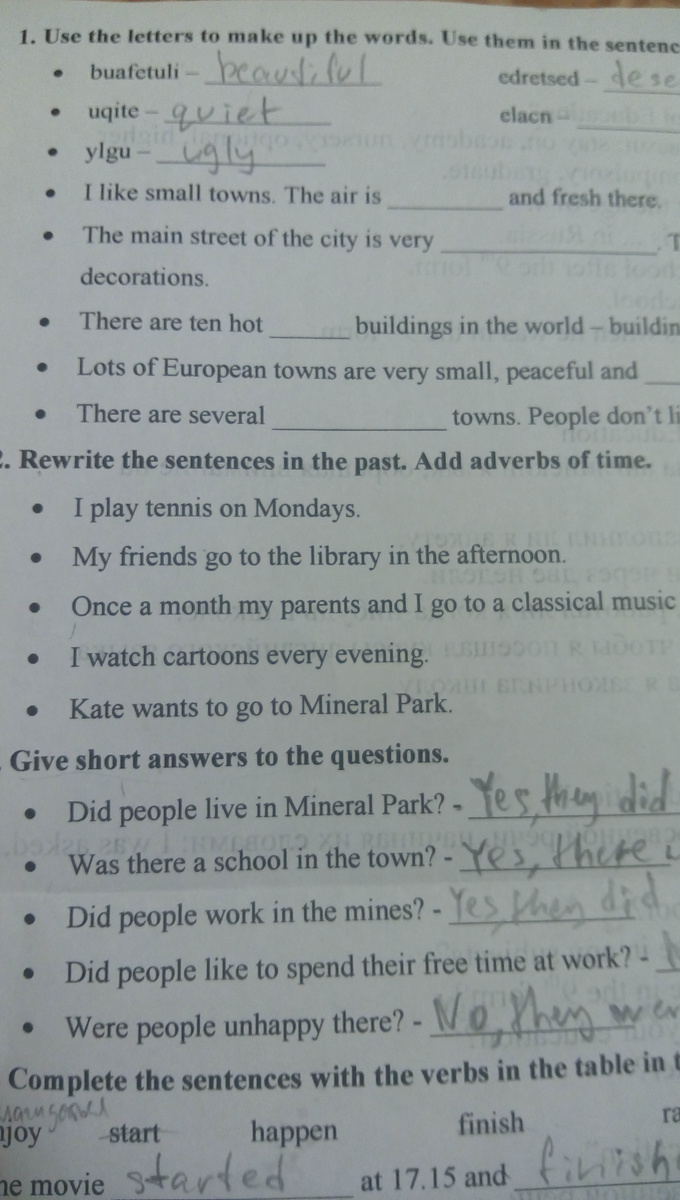 1. Use the letters to make up the words. Use them in the sentenc
• buafetuli – beautiful edretsed – dese
• uqite – quiet elacn –
• ylgu – ugly
• I like small towns. The air is ________ and fresh there.
• The main street of the city is very ________. T
decorations.
• There are ten hot ______ buildings in the world – buildin
• Lots of European towns are very small, peaceful and
• There are several ________ towns. People don't li
2. Rewrite the sentences in the past. Add adverbs of time.
• I play tennis on Mondays.
• My friends go to the library in the afternoon.
• Once a month my parents and I go to a classical music
• I watch cartoons every evening.
• Kate wants to go to Mineral Park.
Give short answers to the questions.
• Did people live in Mineral Park? - Yes, they did
• Was there a school in the town? - Yes, there
• Did people work in the mines? - Yes, they did
• Did people like to spend their free time at work? -
• Were people unhappy there? - No, they wer
Complete the sentences with the verbs in the table in t
njoy start happen finish ra
he movie started at 17.15 and finish